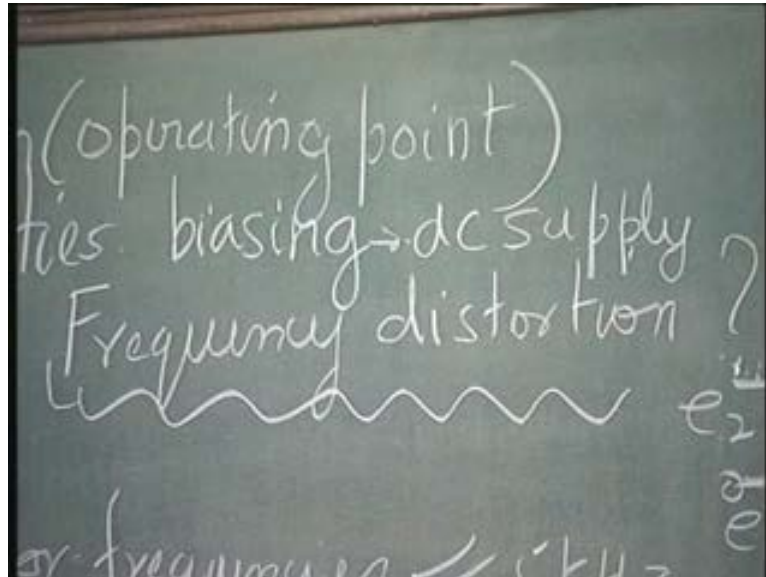 (operating point)
ties. biasing → dc supply
Frequency distortion ?
e2
e
or frequencies